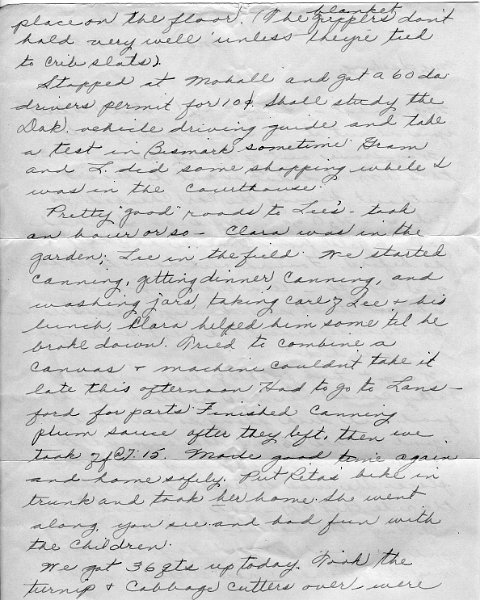 place on the floor! (The blanket zippers don't
hold very well unless they're tied
to crib slats).
Stopped at Mohall and got a 60 da
drivers permit for 10¢. Shall study the
Dak. vehicle driving guide and take
a test in Bismark sometime. Gram
and L. did some shopping while I
was in the courthouse.
Pretty "good" roads to Lee's - took
an hour or so - Clara was in the
garden; Lee in the field. We started
canning, getting dinner, canning, and
washing jars, taking care of Lee + his
lunch, Clara helped him some til he
broke down. Tried to combine a
canvas + machine couldn't take it
late this afternoon. Had to go to Lans-
ford for parts. Finished canning
plum sauce after they left, then we
took off @ 7:15. Made good time again
and home safely. Put Reta's bike in
trunk and took her home. She went
along, you see and had fun with
the children.
We got 36 qts up today. Took the
turnip + cabbage cutters over - were